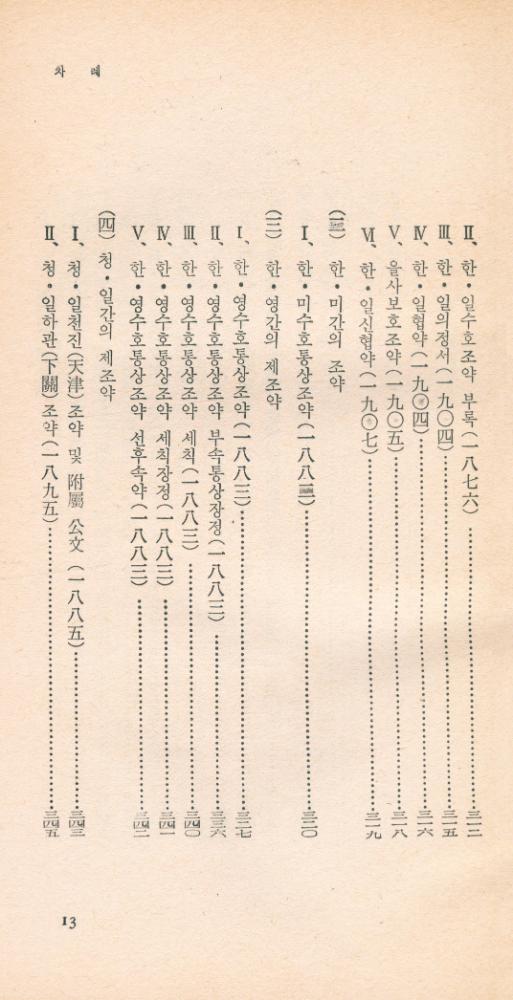 차 례
Ⅱ、한·일수호조약 부록(一八七六)…………三一二
Ⅲ、한·일의정서(一九〇四)…………三一五
Ⅳ、한·일협약(一九〇四)…………三一六
Ⅴ、을사보호조약(一九〇五)…………三一八
Ⅵ、한·일신협약(一九〇七)…………三一九
(二) 한·미간의 조약
Ⅰ、한·미수호통상조약(一八八二)…………三二〇
(三) 한·영간의 제조약
Ⅰ、한·영수호통상조약(一八八三)…………三二七
Ⅱ、한·영수호통상조약 부속통상장정(一八八三)…………三三六
Ⅲ、한·영수호통상조약 세칙(一八八三)…………三四〇
Ⅳ、한·영수호통상조약 세칙장정(一八八三)…………三四一
Ⅴ、한·영수호통상조약 선후속약(一八八三)…………三四二
(四) 청·일간의 제조약
Ⅰ、청·일천진(天津)조약 및 附屬 公文 (一八八五)…………三四三
Ⅱ、청·일하관(下關)조약(一八九五)…………三四五
13